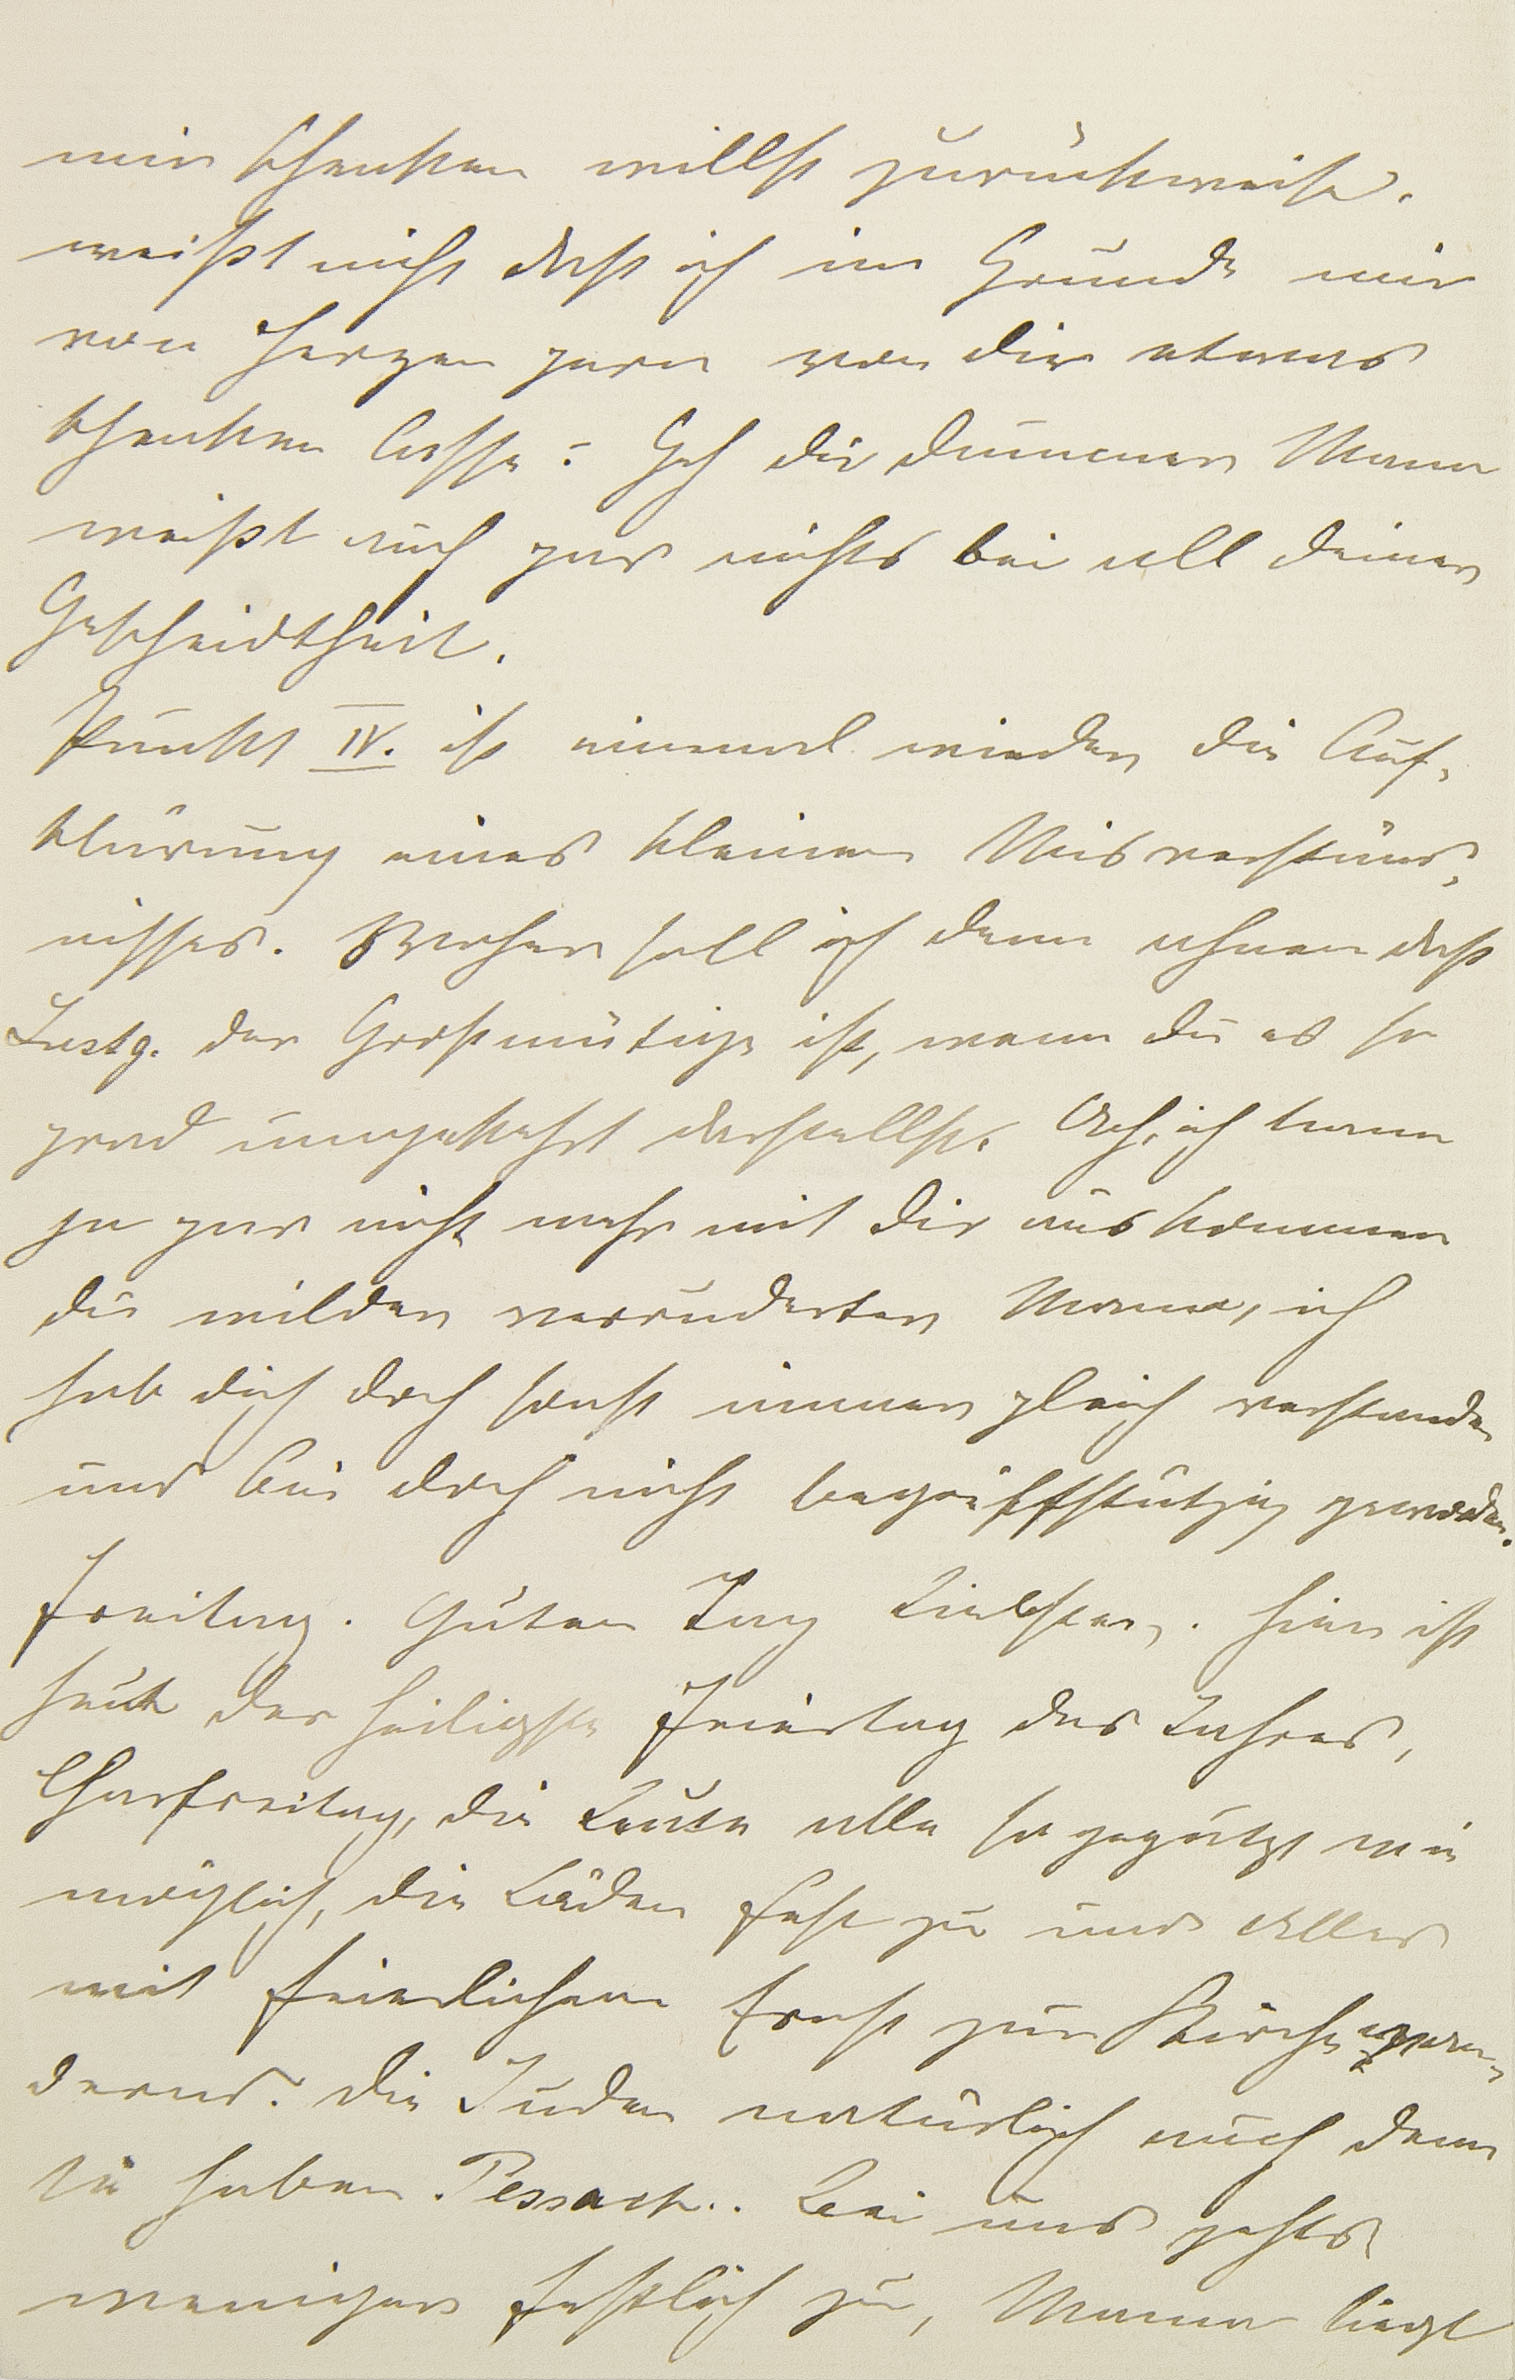 mir schenken willst zurückweise.
weißt nicht daß ich im Grunde mir
von Herzen gern von dir etwas
schenken lasse? Geh du dummer Mann
weißt auch gar nichts bei all deiner
Gescheidtheit.
Punkt IV. ist einmal wieder die Auf-
klärung eines kleinen Misverständ-
nisses. Woher soll ich denn ahnen daß
Lustg. der Großmütige ist, wenn du es so
grad umgekehrt darstellst. Ach, ich kann
ja gar nicht mehr mit dir auskommen
du wilder veränderter Mann, ich
hab dich doch sonst immer gleich verstanden
und bin doch nicht begriffstützig geworden.
Freitag. Guten Tag Liebster. Hier ist
heut der heiligste Feiertag des Jahres,
Charfreitag, die Leute alle so geputzt wie
möglich, die Läden fest zu und Alles
mit feierlichem Ernst zur Kirche wan-
dernd. Die Juden natürlich auch denn
sie haben Pessach. Bei uns gehts
weniger festlich zu, Mama liegt